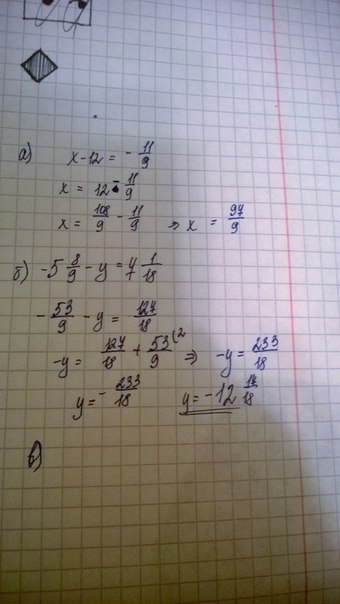 а) x - 12 = - 11/9
x = 12 - 11/9
x = 108/9 - 11/9 ⇒ x = 97/9
б) -5 8/9 - y = 7 1/18
- 53/9 - y = 127/18
-y = 127/18 + 53/9 (2 ⇒ -y = 233/18
y = - 233/18 y = -12 17/18
в)